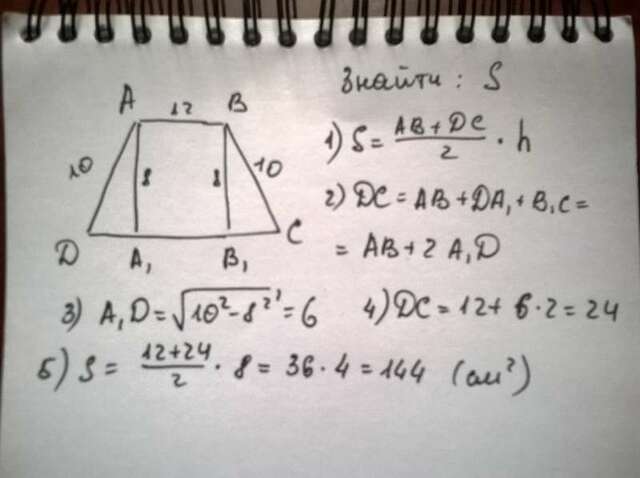 Знайти: S
A 12 B
10 8 8 10
D A₁ B₁ C
1) S = (AB + DC)/2 · h
2) DC = AB + DA₁ + B₁C =
= AB + 2 A₁D
3) A₁D = √(10² - 8²) = 6
4) DC = 12 + 6 · 2 = 24
5) S = (12 + 24)/2 · 8 = 36 · 4 = 144 (см²)